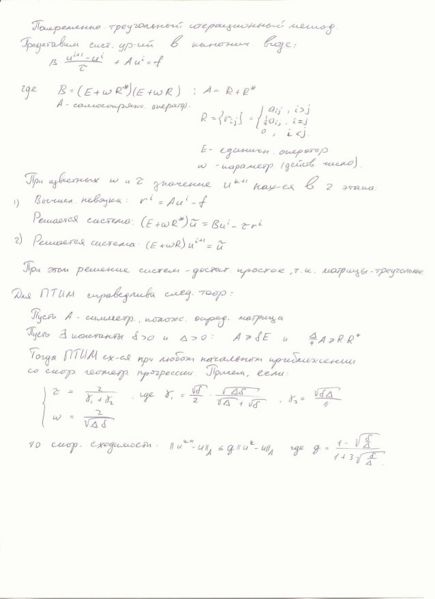 Попеременно треугольный итерационный метод.
Представим сист. ур-ий в каноном виде:
B (u^{i+1} - u^i)/τ + Au^i = f
где B = (E + ωR*)(E + ωR) ; A = R + R*
A - самосопряж. оператр.
R = {r_{ij}} = { a_{ij}, i>j
½a_{ij}, i=j
0, i<j
E - единичн. оператор
ω - параметр (действ число).
При известных ω и τ значение u^{i+1} нах-ся в 2 этапа.
1) Вычисл. невязка: r^i = Au^i - f
Решается система: (E + ωR*)ũ = Bu^i - τr^i
2) Решается система: (E + ωR)u^{i+1} = ũ
При этом решение систем - достат простое, т.к. матрицы - треугольные
Для ПТИМ справедлива след. теор-
Пусть A - симметр., полож. опред. матрица
Пусть ∃ константы δ>0 и Δ>0: A ≥ δE и Δ/4 A ≥ RR*
Тогда ПТИМ сх-ся при любом начальном приближении
со скор геометр прогрессии. Причем, если:
τ = 2/(γ₁ + γ₂), где γ₁ = √δ/2 · √(Δδ)/(√Δ + √δ), γ₂ = √(δΔ)
ω = 2/√(Δδ)
то скор. сходимости ||u^{i+1} - u||_A ≤ q||u^i - u||_A где q = (1 - √(δ/Δ))/(1 + 3√(δ/Δ)).